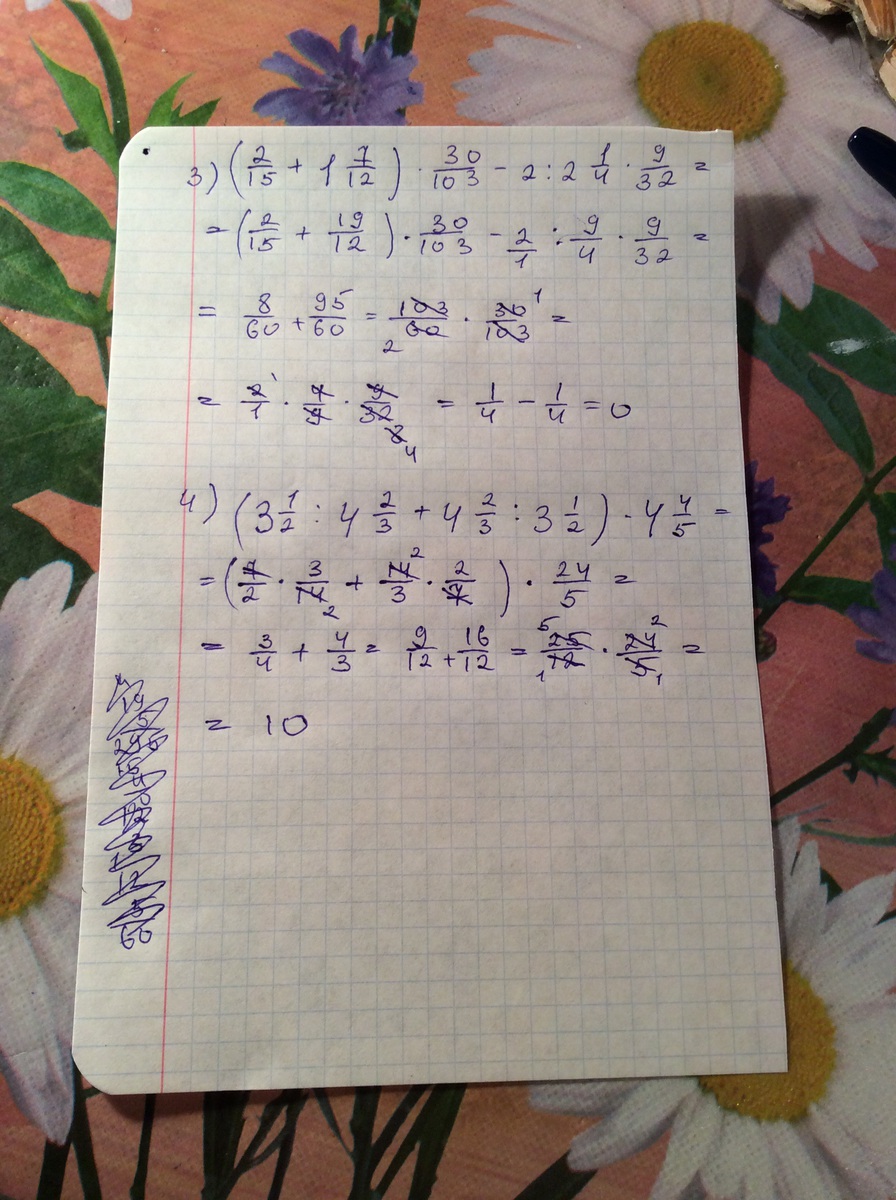 3) (2/15 + 1 7/12) · 30/103 - 2 : 2 1/4 · 9/32 =
= (2/15 + 19/12) · 30/103 - 2/1 : 9/4 · 9/32 =
= 8/60 + 95/60 = 103/60 2 · 30/103 1 =
= 2/1 · 4/9 · 9/32 8 4 = 1/4 - 1/4 = 0
4) (3 1/2 : 4 2/3 + 4 2/3 : 3 1/2) · 4 4/5 =
= (7/2 · 3/14 2 + 14/3 2 · 2/7) · 24/5 =
= 3/4 + 4/3 = 9/12 + 16/12 = 5 25/12 1 · 24/5 2 1 =
= 10